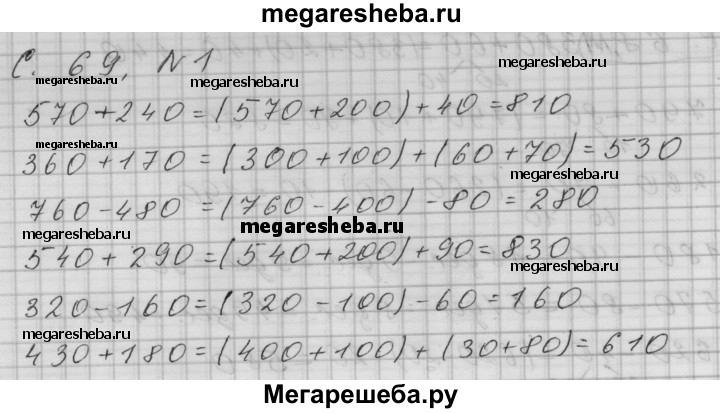 megaresheba.ru
С. 69, N 1
megaresheba.ru
megaresheba.ru
megaresheba.ru
570+240=(570+200)+40=810
360+170=(300+100)+(60+70)=530
megaresheba.ru
megaresheba.ru
760-480=(760-400)-80=280
megaresheba.ru
540+290=(540+200)+90=830
megaresheba.ru
320-160=(320-100)-60=160
megaresheba.ru
430+180=(400+100)+(30+80)=610
Мегарешеба.ру